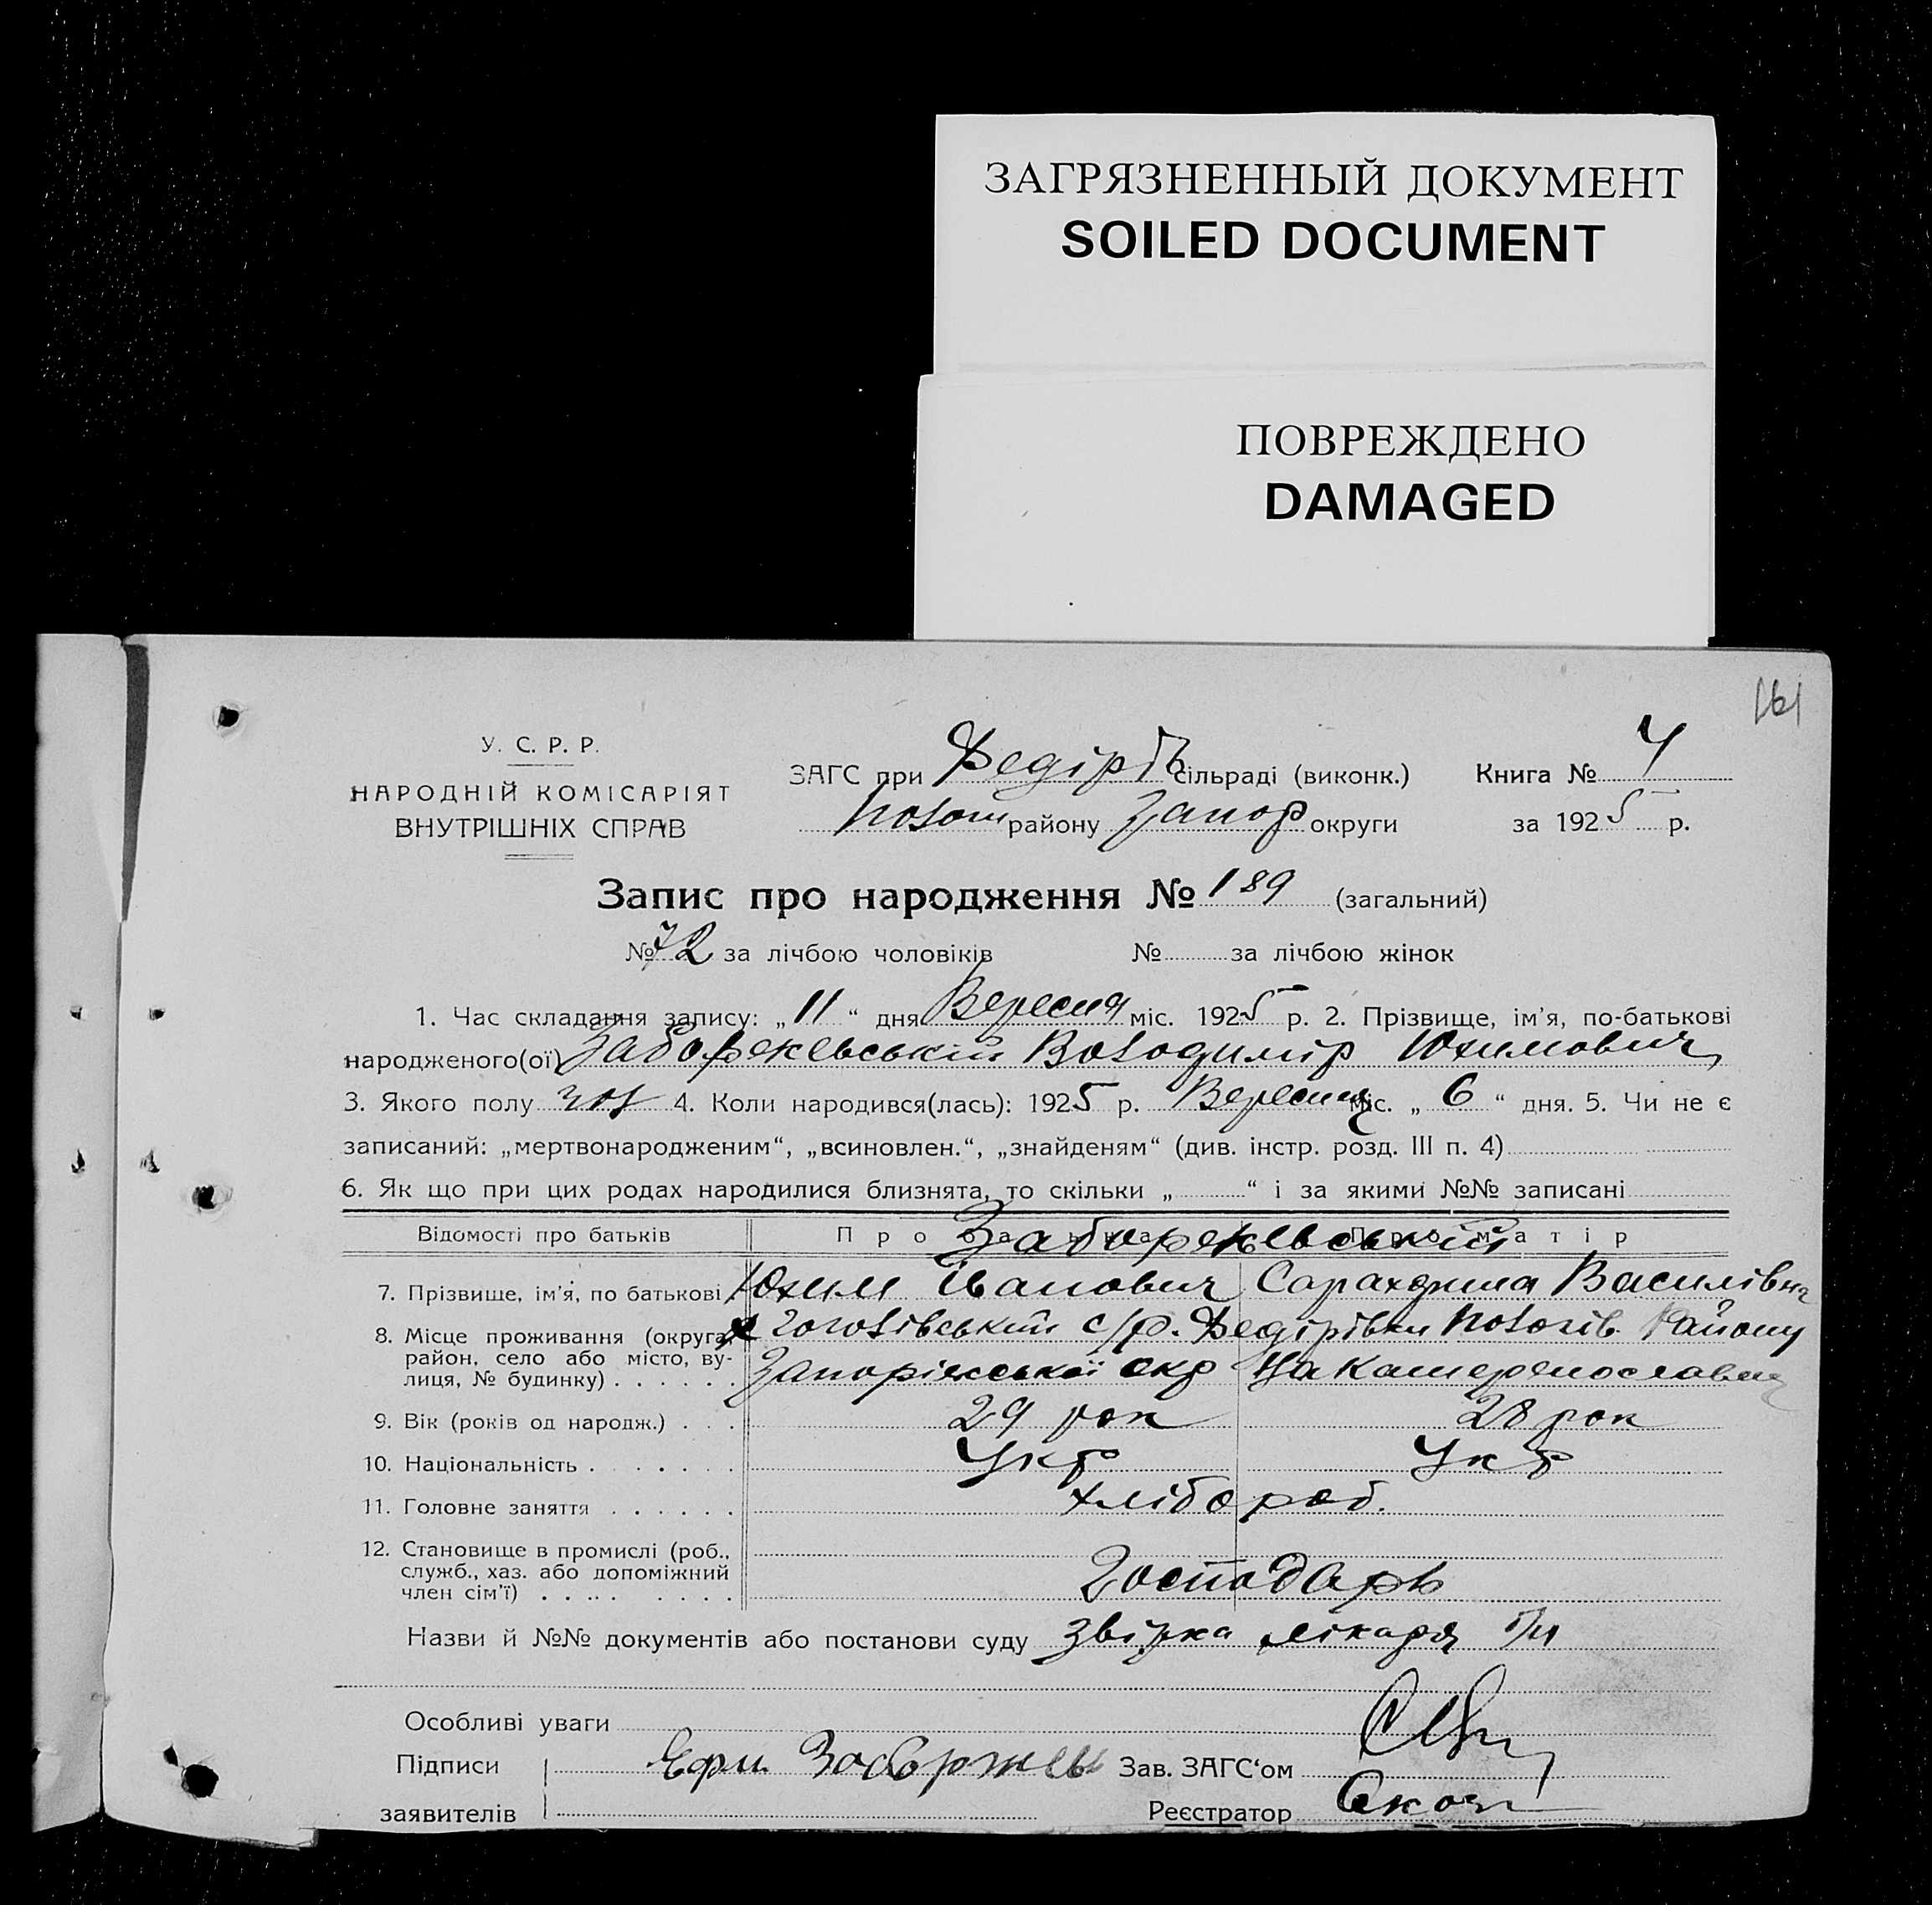 ЗАГРЯЗНЕННЫЙ ДОКУМЕНТ
SOILED DOCUMENT
ПОВРЕЖДЕНО
DAMAGED
161
У. С. Р. Р.
НАРОДНІЙ КОМІСАРІЯТ
ВНУТРІШНІХ СПРАВ
ЗАГС при Федірів сільраді (виконк.) Книга № 4
району Запор округи за 1925 р.
Запис про народження № 189 (загальний)
№ 72 за лічбою чоловіків № за лічбою жінок
1. Час складання запису: „11“ дня Вересня міс. 1925 р. 2. Прізвище, ім’я, по-батькові
народженого(ої) Володимір Юхимович
3. Якого полу чол 4. Коли народився(лась): 1925 р. Вересня міс. „6“ дня. 5. Чи не є
записаний: „мертвонародженим“, „всиновлен.“, „знайденям“ (див. інстр. розд. III п. 4)
6. Як що при цих родах народилися близнята, то скільки „ “ і за якими №№ записані
Відомості про батьків Про батька Про матір
7. Прізвище, ім’я, по батькові Юхим Іванович Василівна
8. Місце проживання (округа, с/р. Федірівки Району
район, село або місто, ву- Запоріжської окр
лиця, № будинку)
9. Вік (років од народж.) 29 рок 28 рок
10. Національність Укр Укр
11. Головне заняття хлібороб.
12. Становище в промислі (роб.,
служб., хаз. або допоміжний Господарь
член сім’ї)
Назви й №№ документів або постанови суду лікаря
Особливі уваги
Підписи Зав. ЗАГС‘ом
заявителів Реєстратор